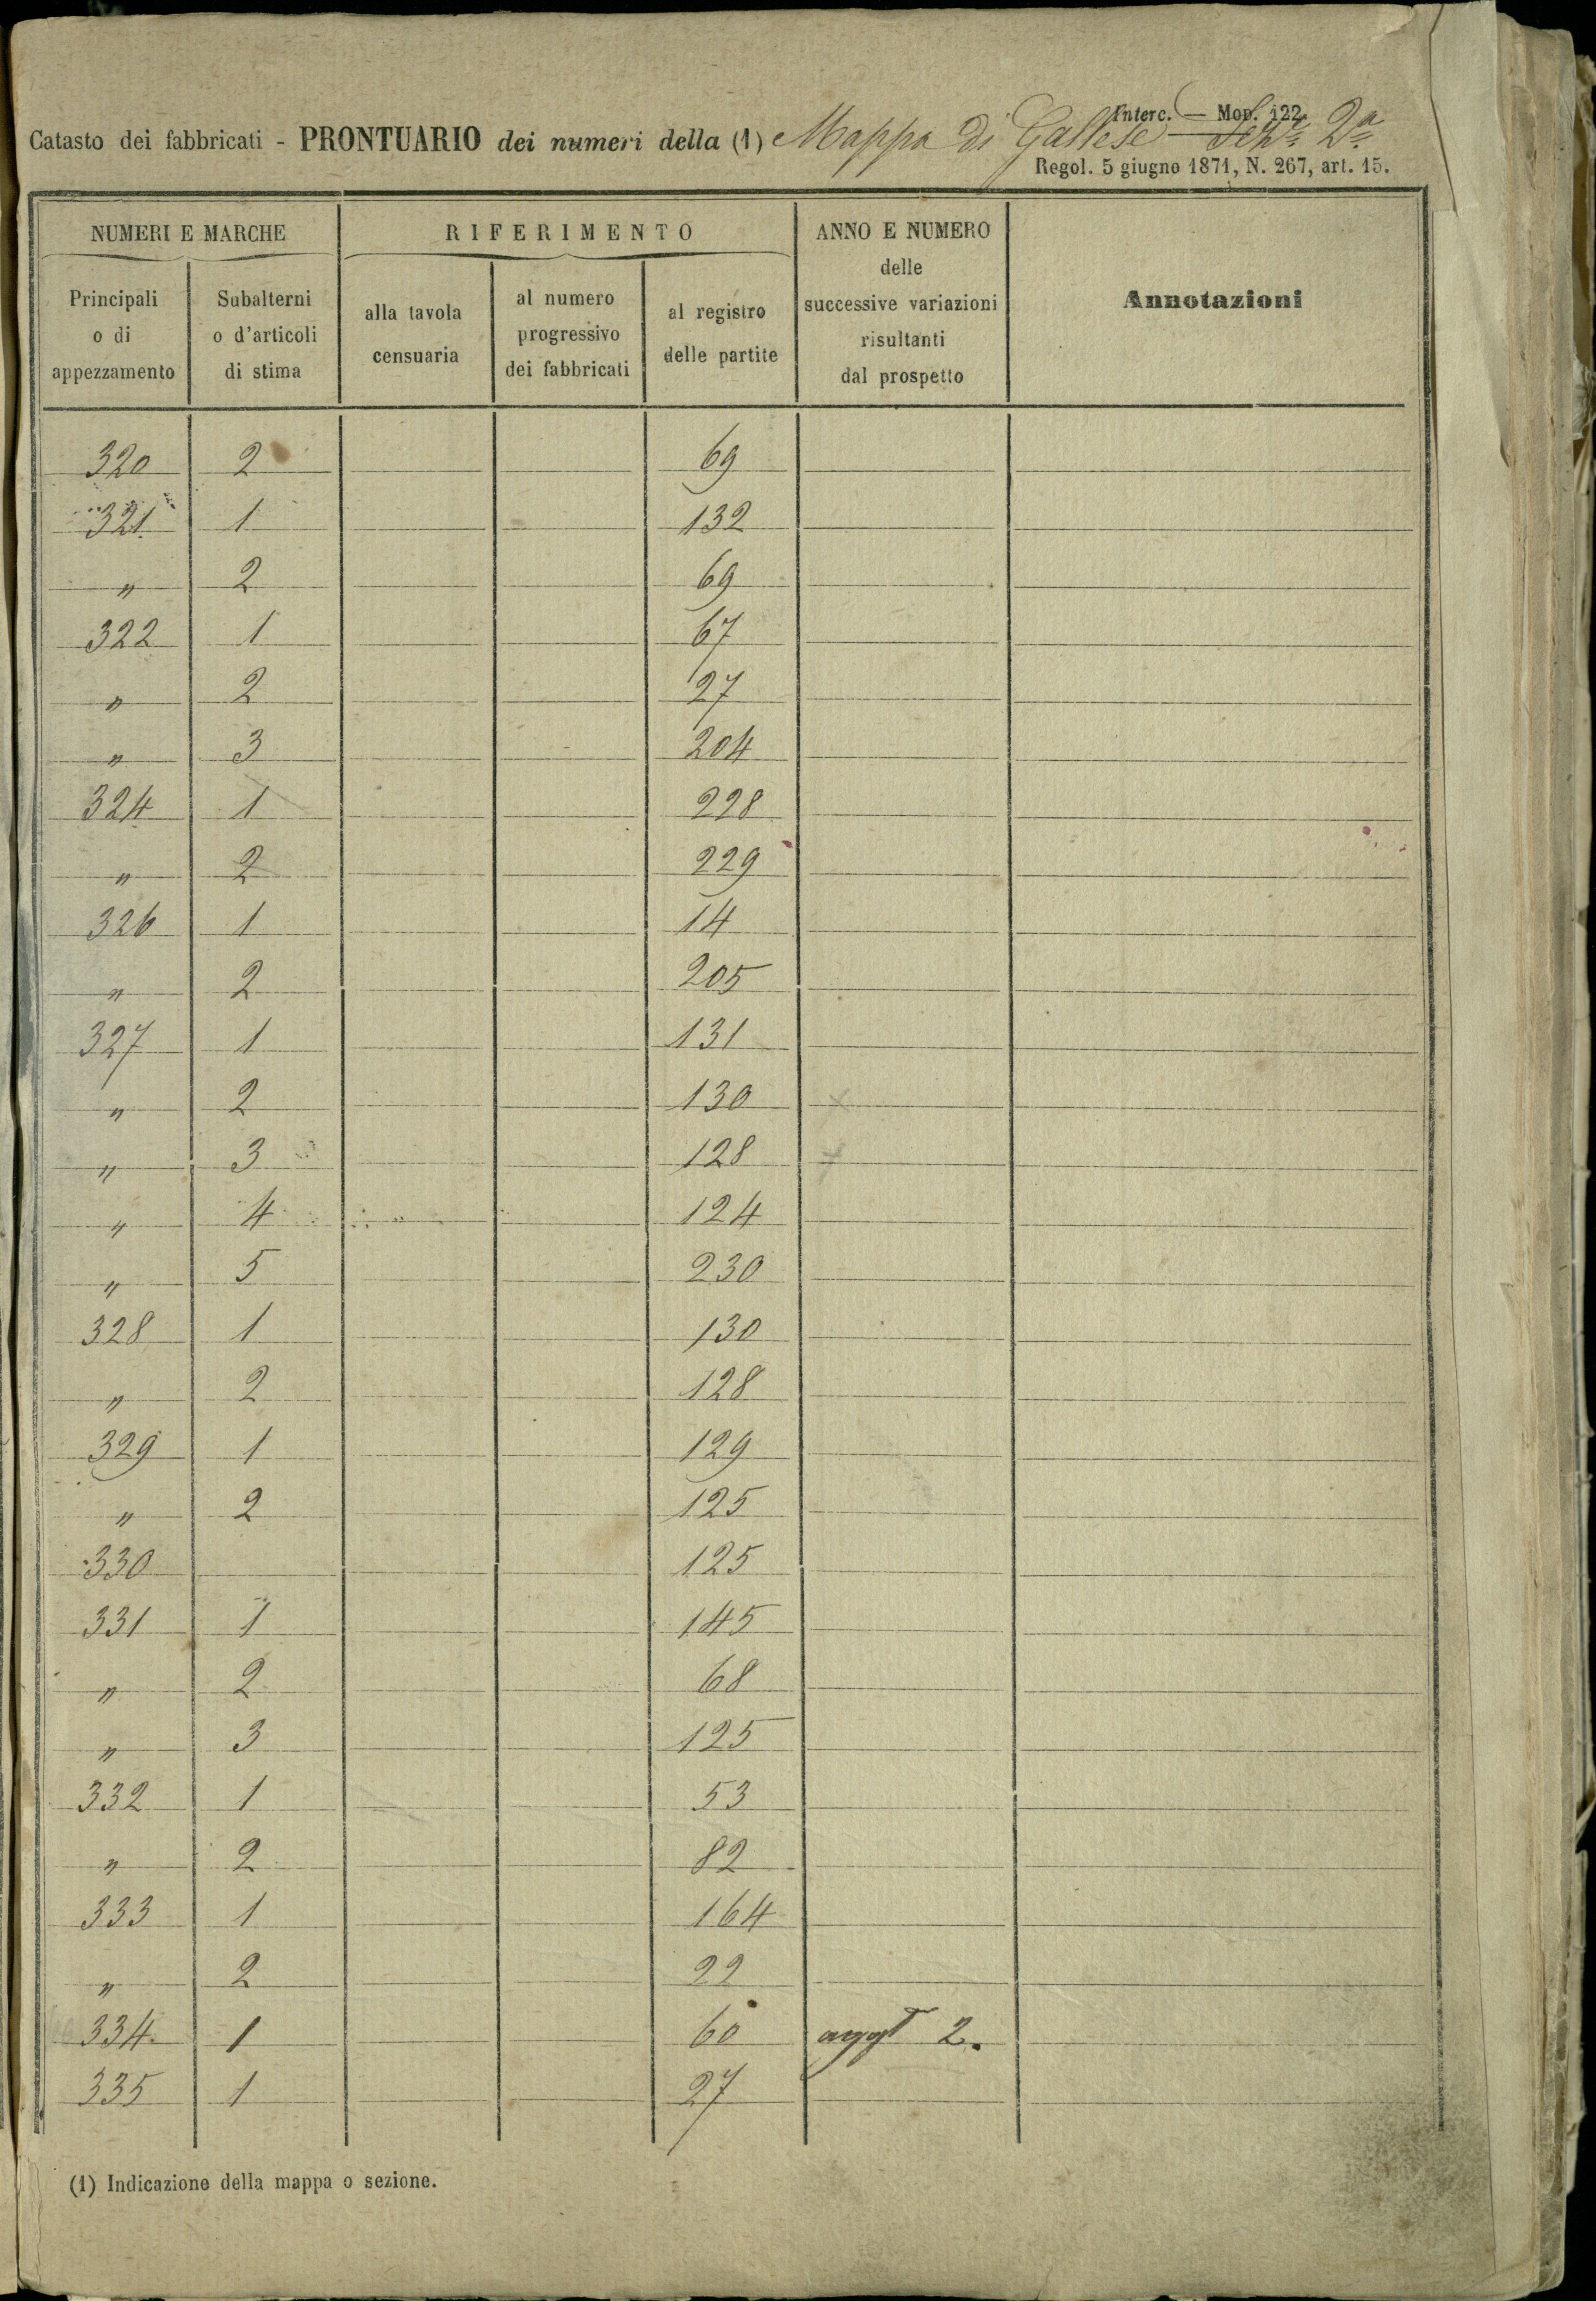 Interc. — Mod. 122.
Catasto dei fabbricati - PRONTUARIO dei numeri della (1) Mappa di Gallese 2ª
Regol. 5 giugno 1871, N. 267, art. 15.
NUMERI E MARCHE RIFERIMENTO ANNO E NUMERO delle successive variazioni risultanti dal prospetto Annotazioni
Principali o di appezzamento Subalterni o d'articoli di stima alla tavola censuaria al numero progressivo dei fabbricati al registro delle partite
320 2 69
321 1 132
" 2 69
322 1 67
" 2 27
" 3 204
324 1 228
" 2 229
326 1 14
" 2 205
327 1 131
" 2 130
" 3 128
" 4 124
" 5 230
328 1 130
" 2 128
329 1 129
" 2 125
330 125
331 1 145
" 2 68
" 3 125
332 1 53
" 2 82
333 1 164
" 2 22
334 1 60 2.
335 1 27
(1) Indicazione della mappa o sezione.